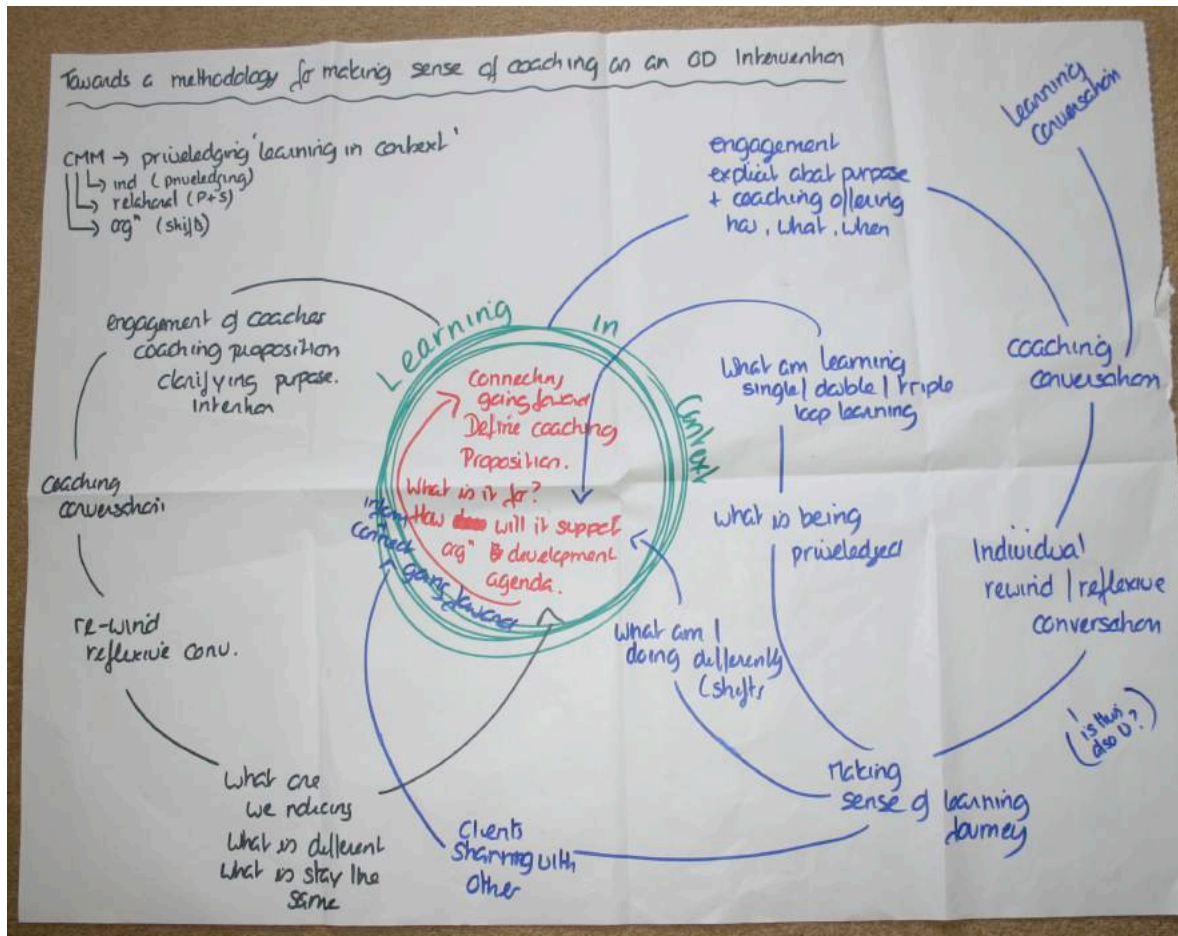 Towards a methodology for making sense of coaching as an OD Intervention
CMM → priveledging 'learning in context'
↳ ind (priveledging)
↳ relational (P+S)
↳ orgⁿ (shifts)
engagement of coaches
coaching proposition
clarifying purpose.
intention
coaching
conversation
re-wind
reflexive conv.
What are
we noticing
What is different
What is stay the
same
Learning in Context
Connecting
going forward
Define coaching
Proposition.
What is it for?
How will it support
orgⁿ development
agenda.
inform
connect going forward
engagement
explicit about purpose
+ coaching offering
how, what, when
Learning
conversation
coaching
conversation
What am learning
single / double / triple
loop learning
what is being
priveledged
What am I
doing differently
(shifts
Individual
rewind / reflexive
conversation
(is this
also U?)
Making
sense of learning
Journey
Clients
sharing with
other